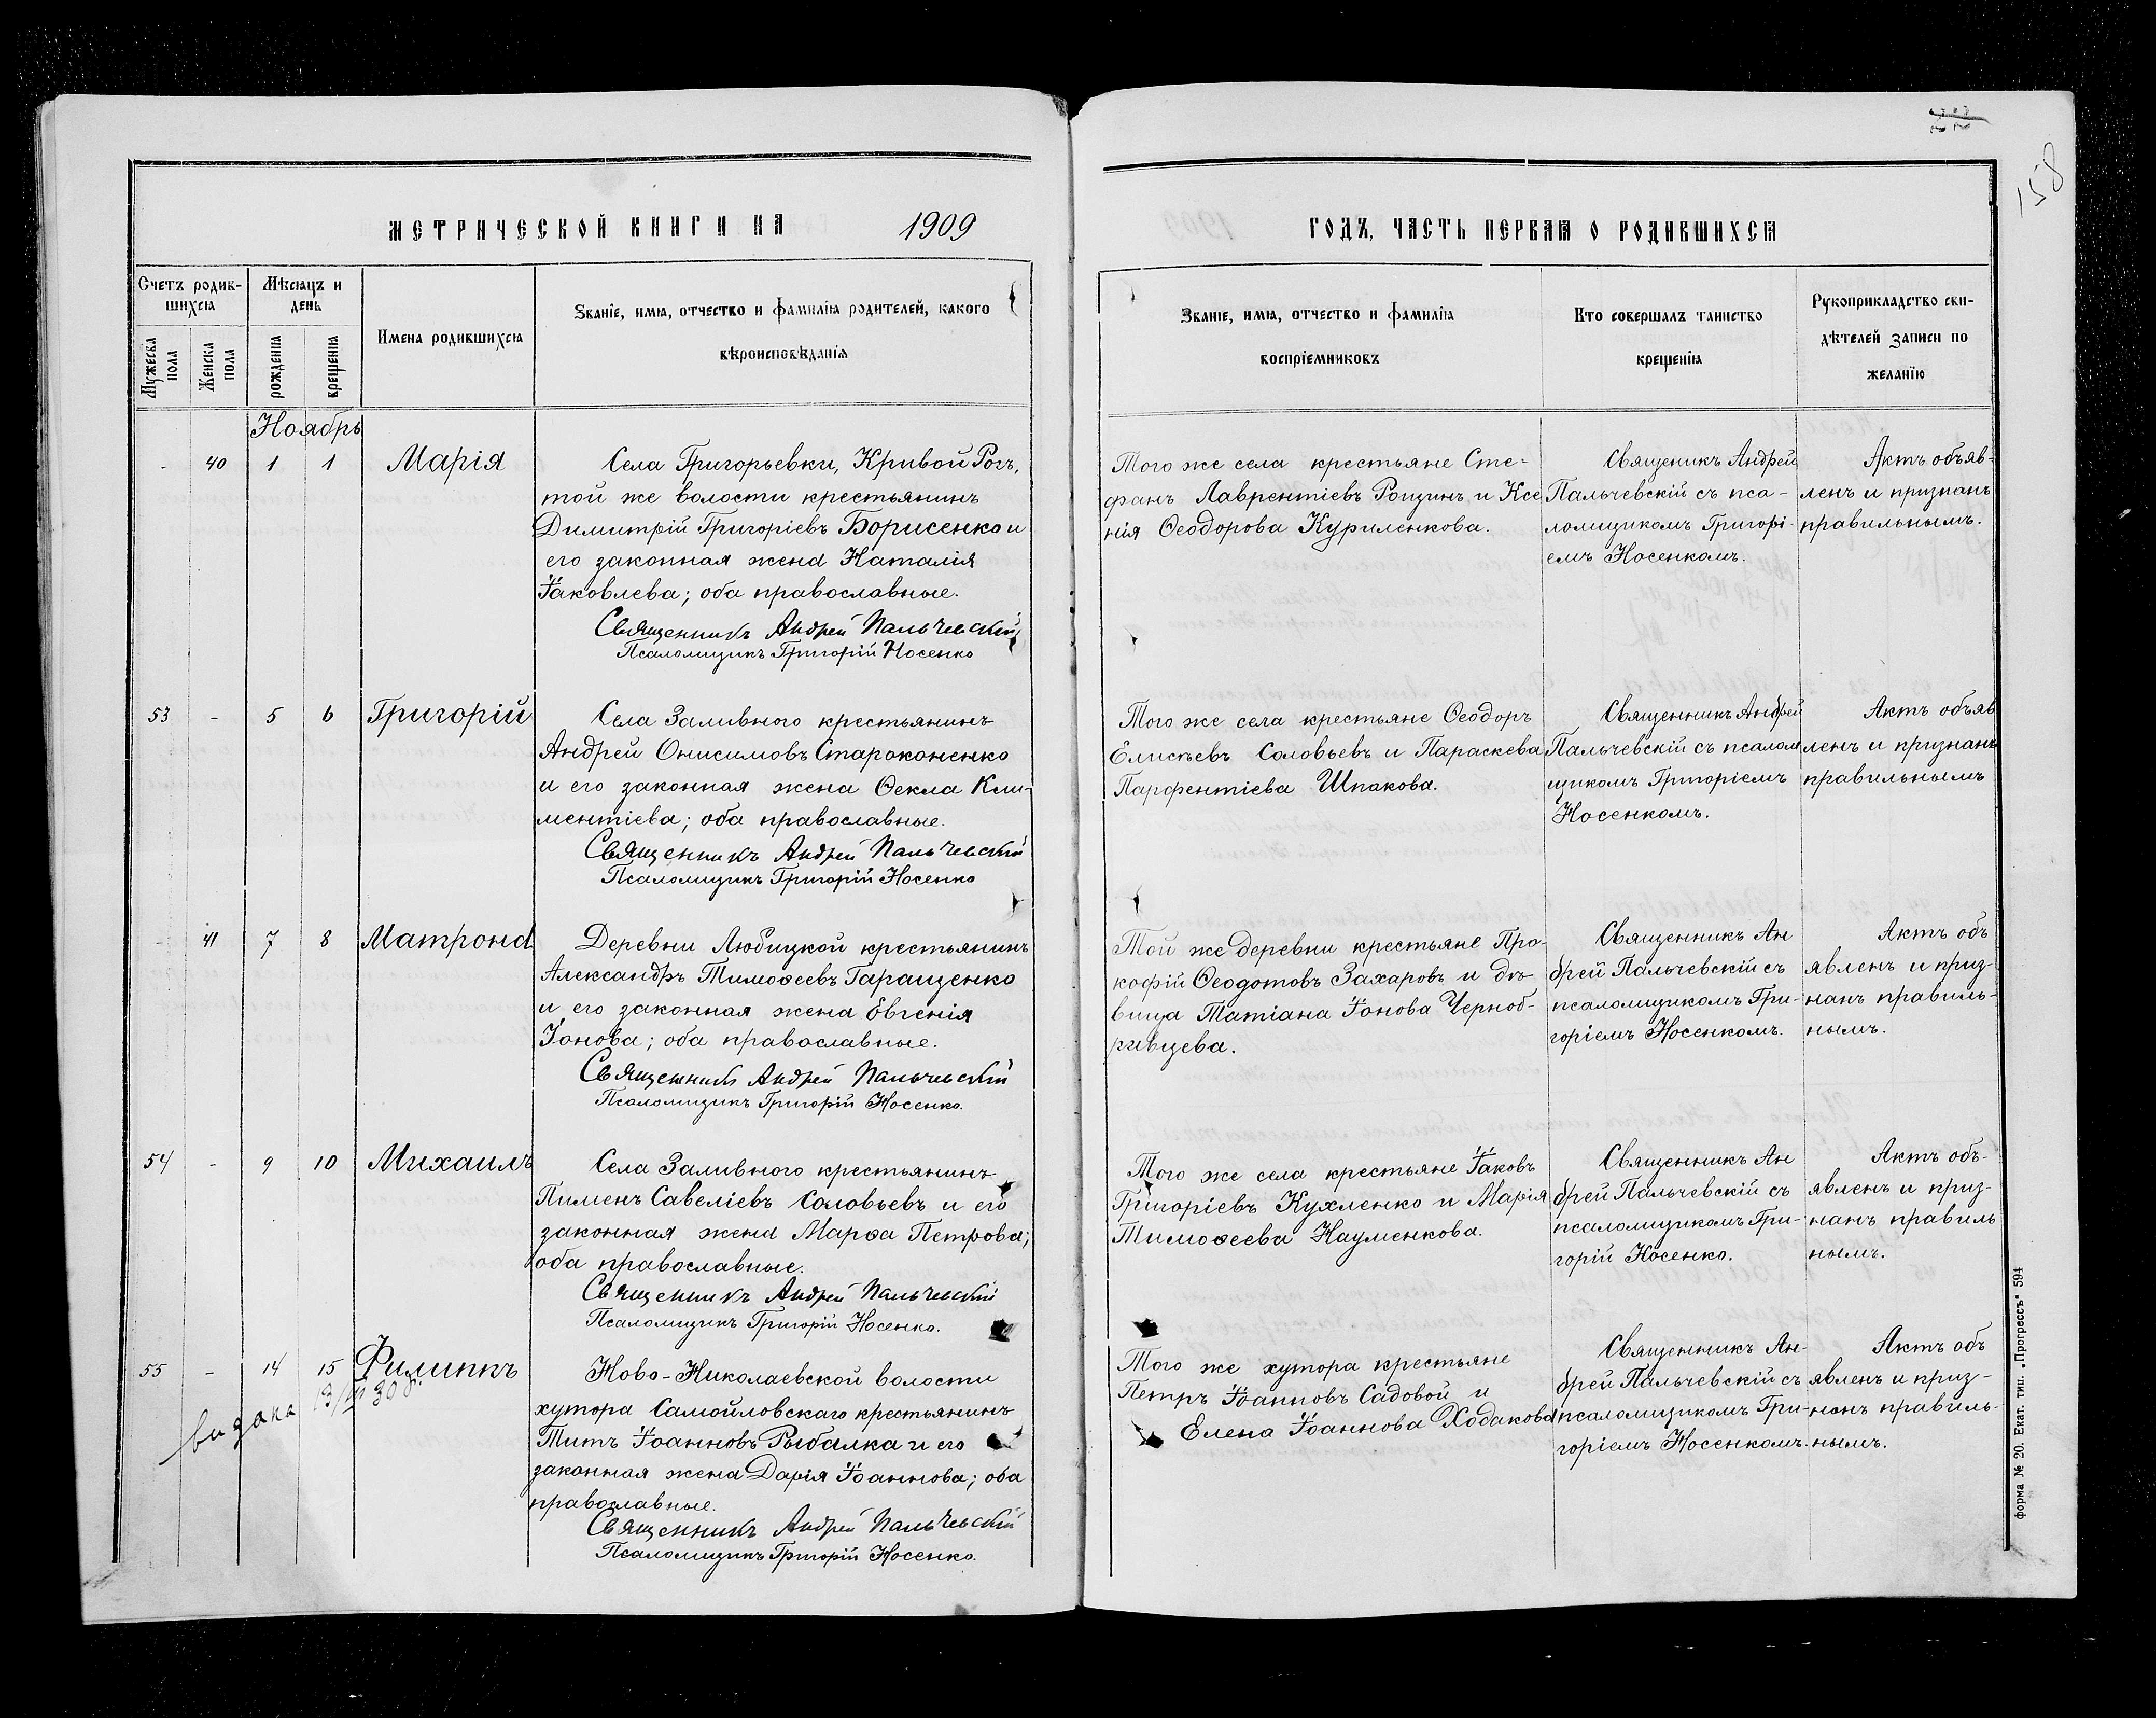 158
МЕТРИЧЕСКОЙ КНИГИ НА 1909
ГОДЪ, ЧАСТЬ ПЕРВАЯ О РОДИВШИХСЯ
Счетъ родив-
шихся
Мужеска пола
Женска пола
Мѣсяцъ и
день
рожденія
крещенія
Имена родившихся
Званіе, имя, отчество и фамилія родителей, какого
вѣроисповѣданія
Званіе, имя, отчество и фамилія
воспріемниковъ
Кто совершалъ таинство
крещенія
Рукоприкладство сви-
дѣтелей записи по
желанію
Ноябрь
- 40 1 1 Марія
Села Григорьевки, Кривой Рогъ,
той же волости крестьянинъ
Димитрій Григоріевъ Борисенко и
его законная жена Наталія
Іаковлева; оба православные.
Священникъ Андрей Пальчевскій
Псаломщикъ Григорій Носенко
Того же села крестьяне Сте-
фанъ Лаврентіевъ Рощинъ и Ксе
нія Ѳеодорова Куриленкова.
Священикъ Андрей
Пальчевскій съ пса-
ломщикомъ Григорі-
емъ Носенкомъ.
Актъ объяв-
ленъ и признанъ
правильнымъ.
53 - 5 6 Григорій
Села Заливного крестьянинъ
Андрей Онисимовъ Староконенко
и его законная жена Ѳекла Кли-
ментіева; оба православные.
Священникъ Андрей Пальчевскій
Псаломщикъ Григорій Носенко
Того же села крестьяне Ѳеодоръ
Елисѣевъ Соловьевъ и Параскева
Парфентіева Шпакова.
Священникъ Андрей
Пальчевскій съ псалом
щикомъ Григоріемъ
Носенкомъ.
Актъ объяв
ленъ и признанъ
правильнымъ
- 41 7 8 Матрона
Деревни Любицкой крестьянинъ
Александръ Тимоѳеевъ Гаращенко
и его законная жена Евгенія
Іонова; оба православные.
Священникъ Андрей Пальчевскій
Псаломщикъ Григорій Носенко.
Той же деревни крестьяне Про-
кофій Ѳеодотовъ Захаровъ и дѣ-
вица Татіана Іонова Черноб-
ривцева.
Священникъ Ан
дрей Пальчевскій съ
псаломщикомъ Гри-
горіемъ Носенкомъ.
Актъ объ
явленъ и приз-
нанъ правиль-
нымъ.
54 - 9 10 Михаилъ
Села Заливного крестьянинъ
Пименъ Савеліевъ Соловьевъ и его
законная жена Марѳа Петрова;
оба православные.
Священникъ Андрей Пальчевскій
Псаломщикъ Григорій Носенко.
Того же села крестьяне Іаковъ
Григоріевъ Кухленко и Марія
Тимоѳеева Науменкова.
Священникъ Ан
дрей Пальчевскій съ
псаломщикомъ Гри-
горій Носенко.
Актъ объ-
явленъ и приз-
нанъ правиль
нымъ.
55 - 14 15 Филиппъ
видана 13/III 30 г.
Ново-Николаевской волости
хутора Самойловскаго крестьянинъ
Титъ Іоанновъ Рыбалка и его
законная жена Дарія Іоаннова; оба
православные.
Священникъ Андрей Пальчевскій
Псаломщикъ Григорій Носенко.
Того же хутора крестьяне
Петръ Іоанновъ Садовой и
Елена Іоаннова Ходакова
Священникъ Ан-
дрей Пальчевскій съ
псаломщикомъ Гри-
горіемъ Носенкомъ.
Актъ объ
явленъ и приз-
нанъ правиль-
нымъ.
форма № 20. Екат. тип. „Прогрессъ" 594